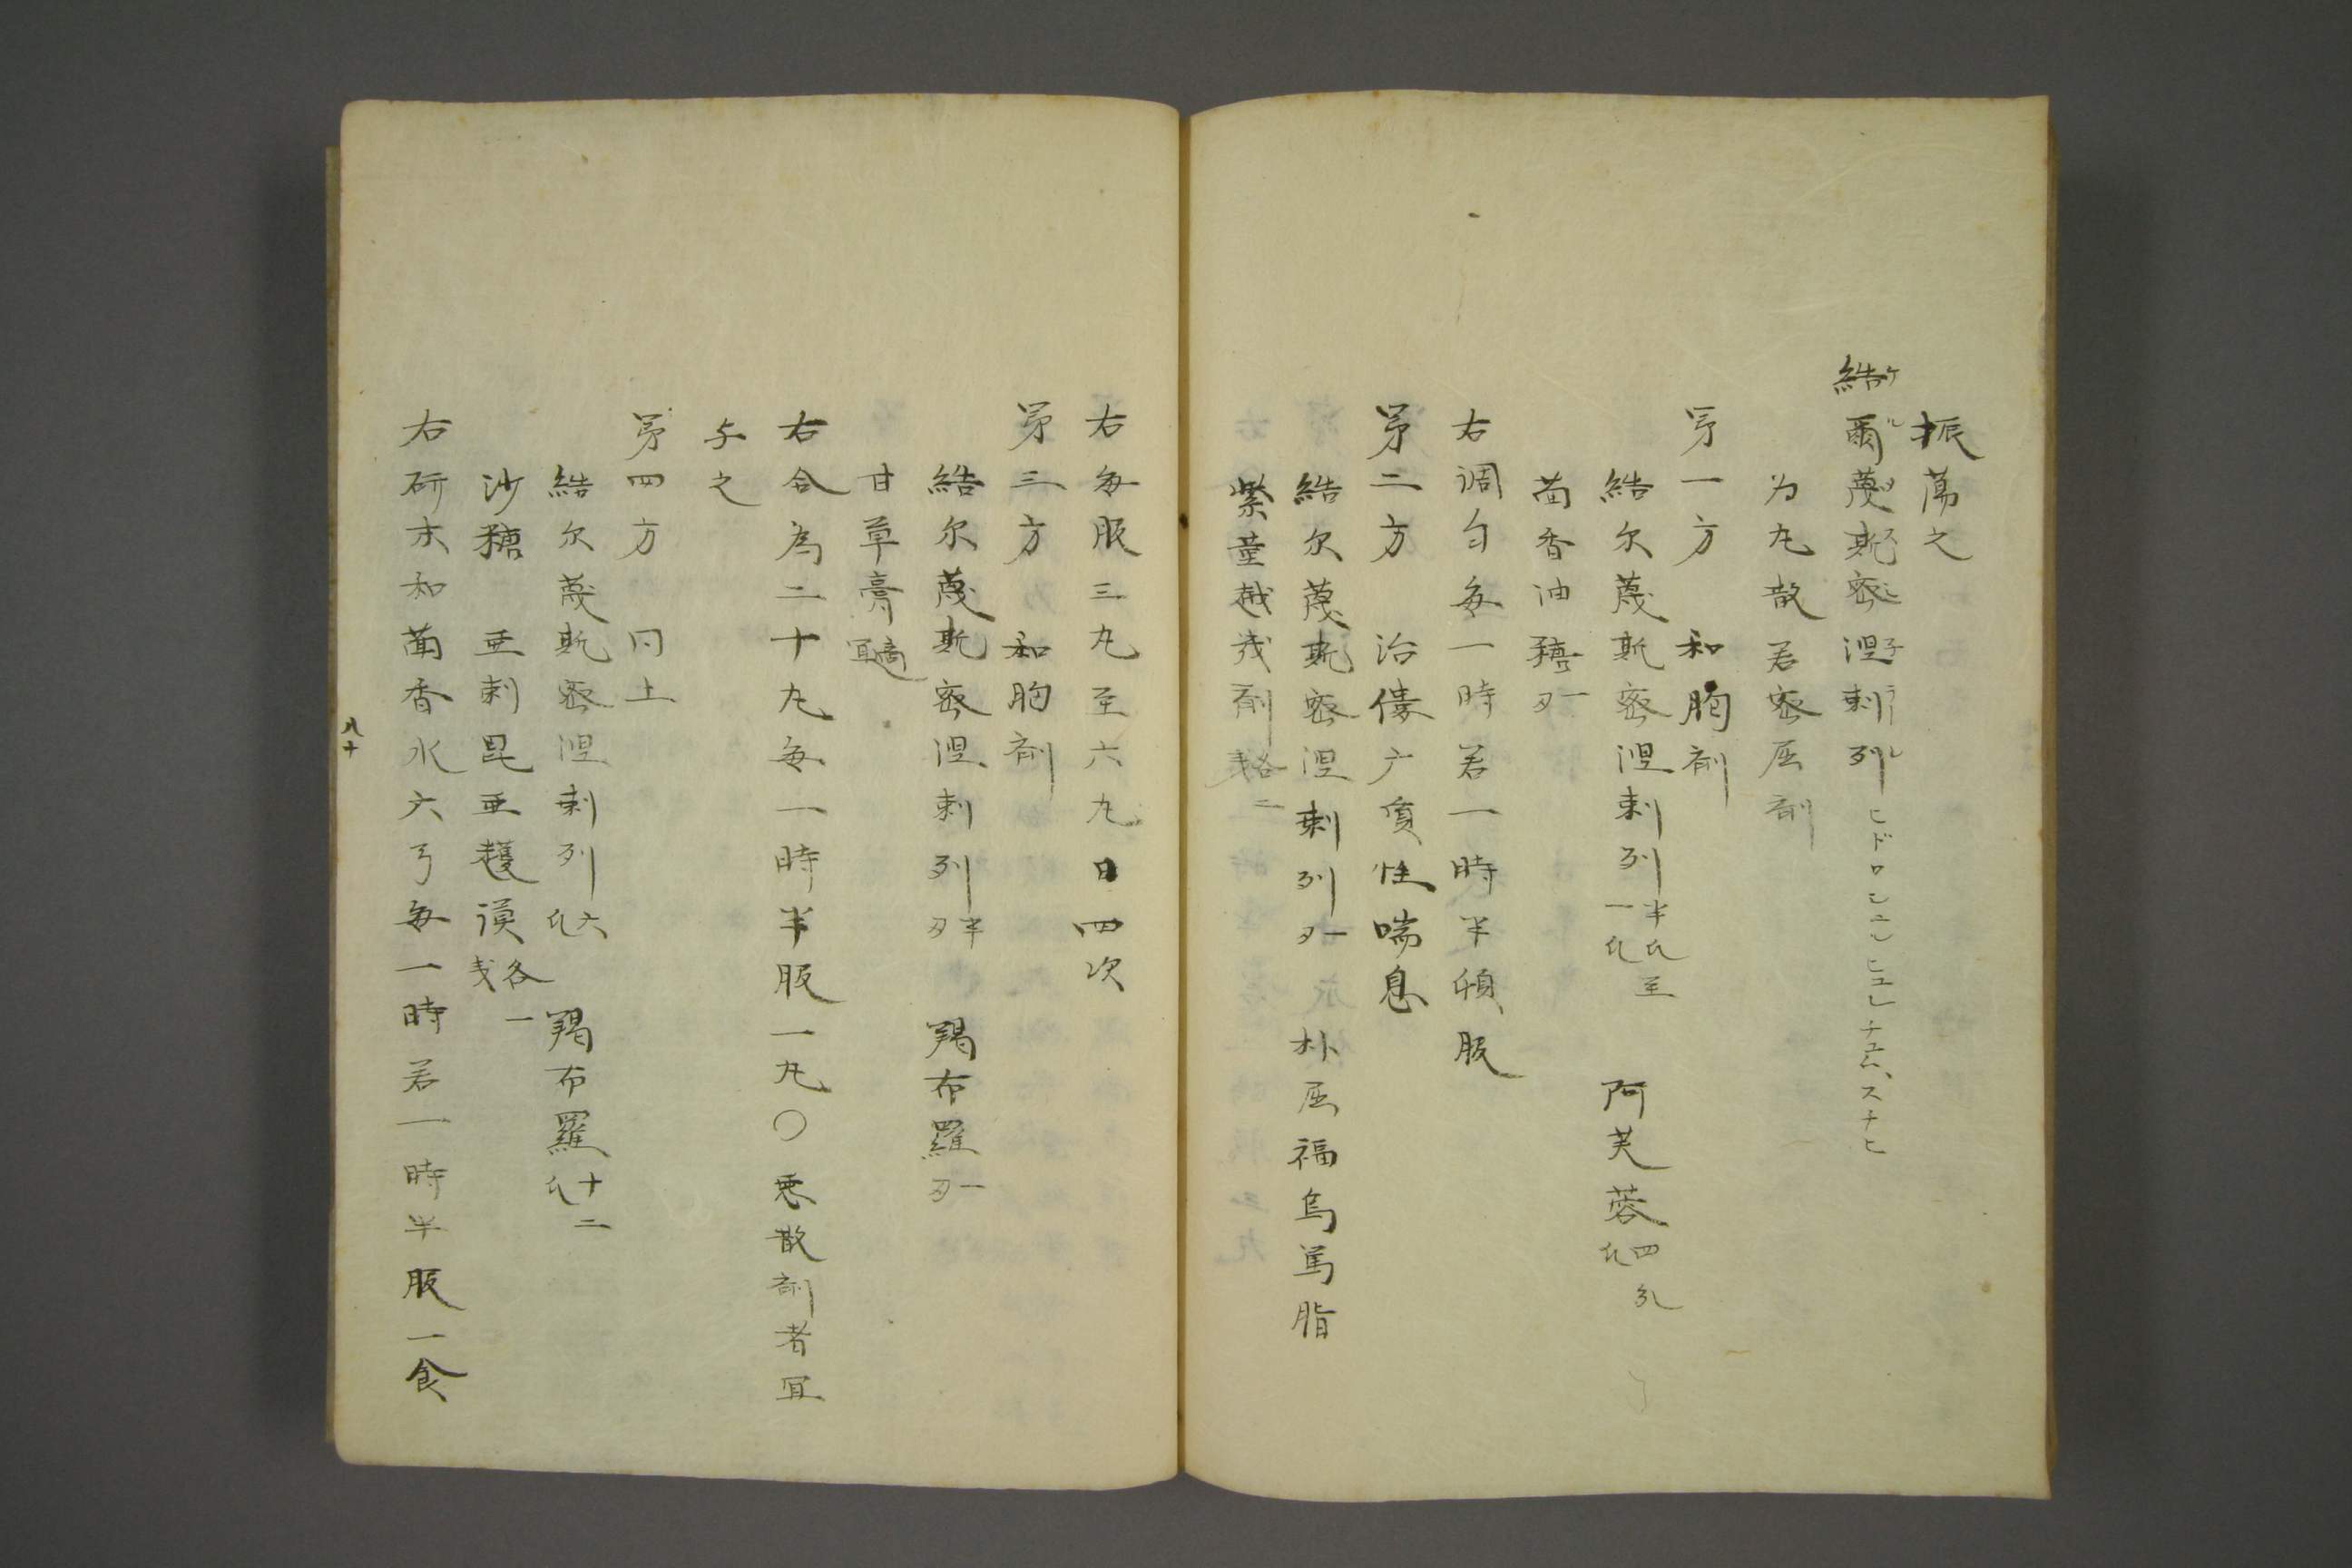 振蕩之
結爾蔑斯密涅剌列
為丸散若密屈剤
第一方 和胸剤
結尓蔑斯密涅剌列半氏至一氏 阿芙蓉四氏
茴香油糖一刄
右調匀毎一時若一時半頓服
第二方 治僂广質性喘息
結尓蔑斯密涅剌列一刄 朴屈福烏篤脂
紫菫越幾剤各二戔
右毎服三丸至六丸日四次
第三方 和胸剤
結尓蔑斯密涅剌列半刄 羯布羅一刄
甘草膏適宜
右合為二十丸毎一時半服一丸〇悪散剤者宜
与之
第四方 同上
結尓蔑斯密涅剌列六氏 羯布羅十二氏
沙糖 亜剌毘亜護謨各一戔
右研末和茴香水六弓毎一時若一時半服一食
八十